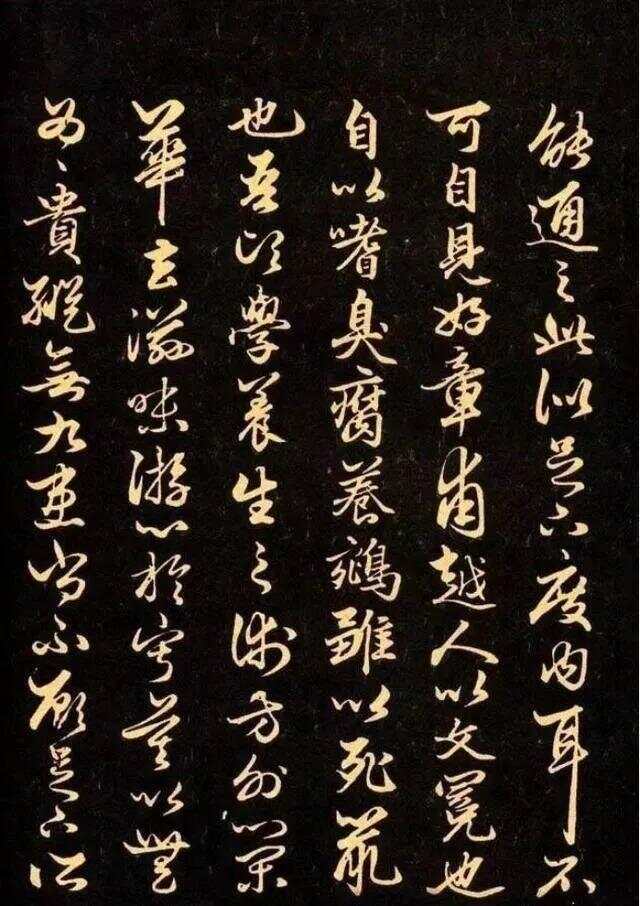 能通之此似足下度内耳不
可自見好章甫越人以文冕也
自以嗜臭腐養鵷雛以死鼠
也吾頃學養生之術方外榮
華去滋味游心於寂寞以無
為〻貴縱無九患尚不顧足下所